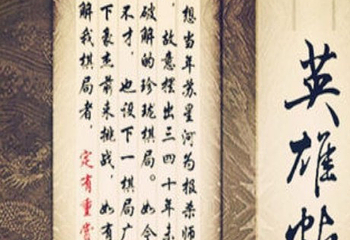 英雄帖
想当年苏星河为报杀师
，故意摆出三四十年未
破解的珍珑棋局。如今
不才，也设下一棋局广
下豪杰前来挑战，如有
解我棋局者，定有重赏